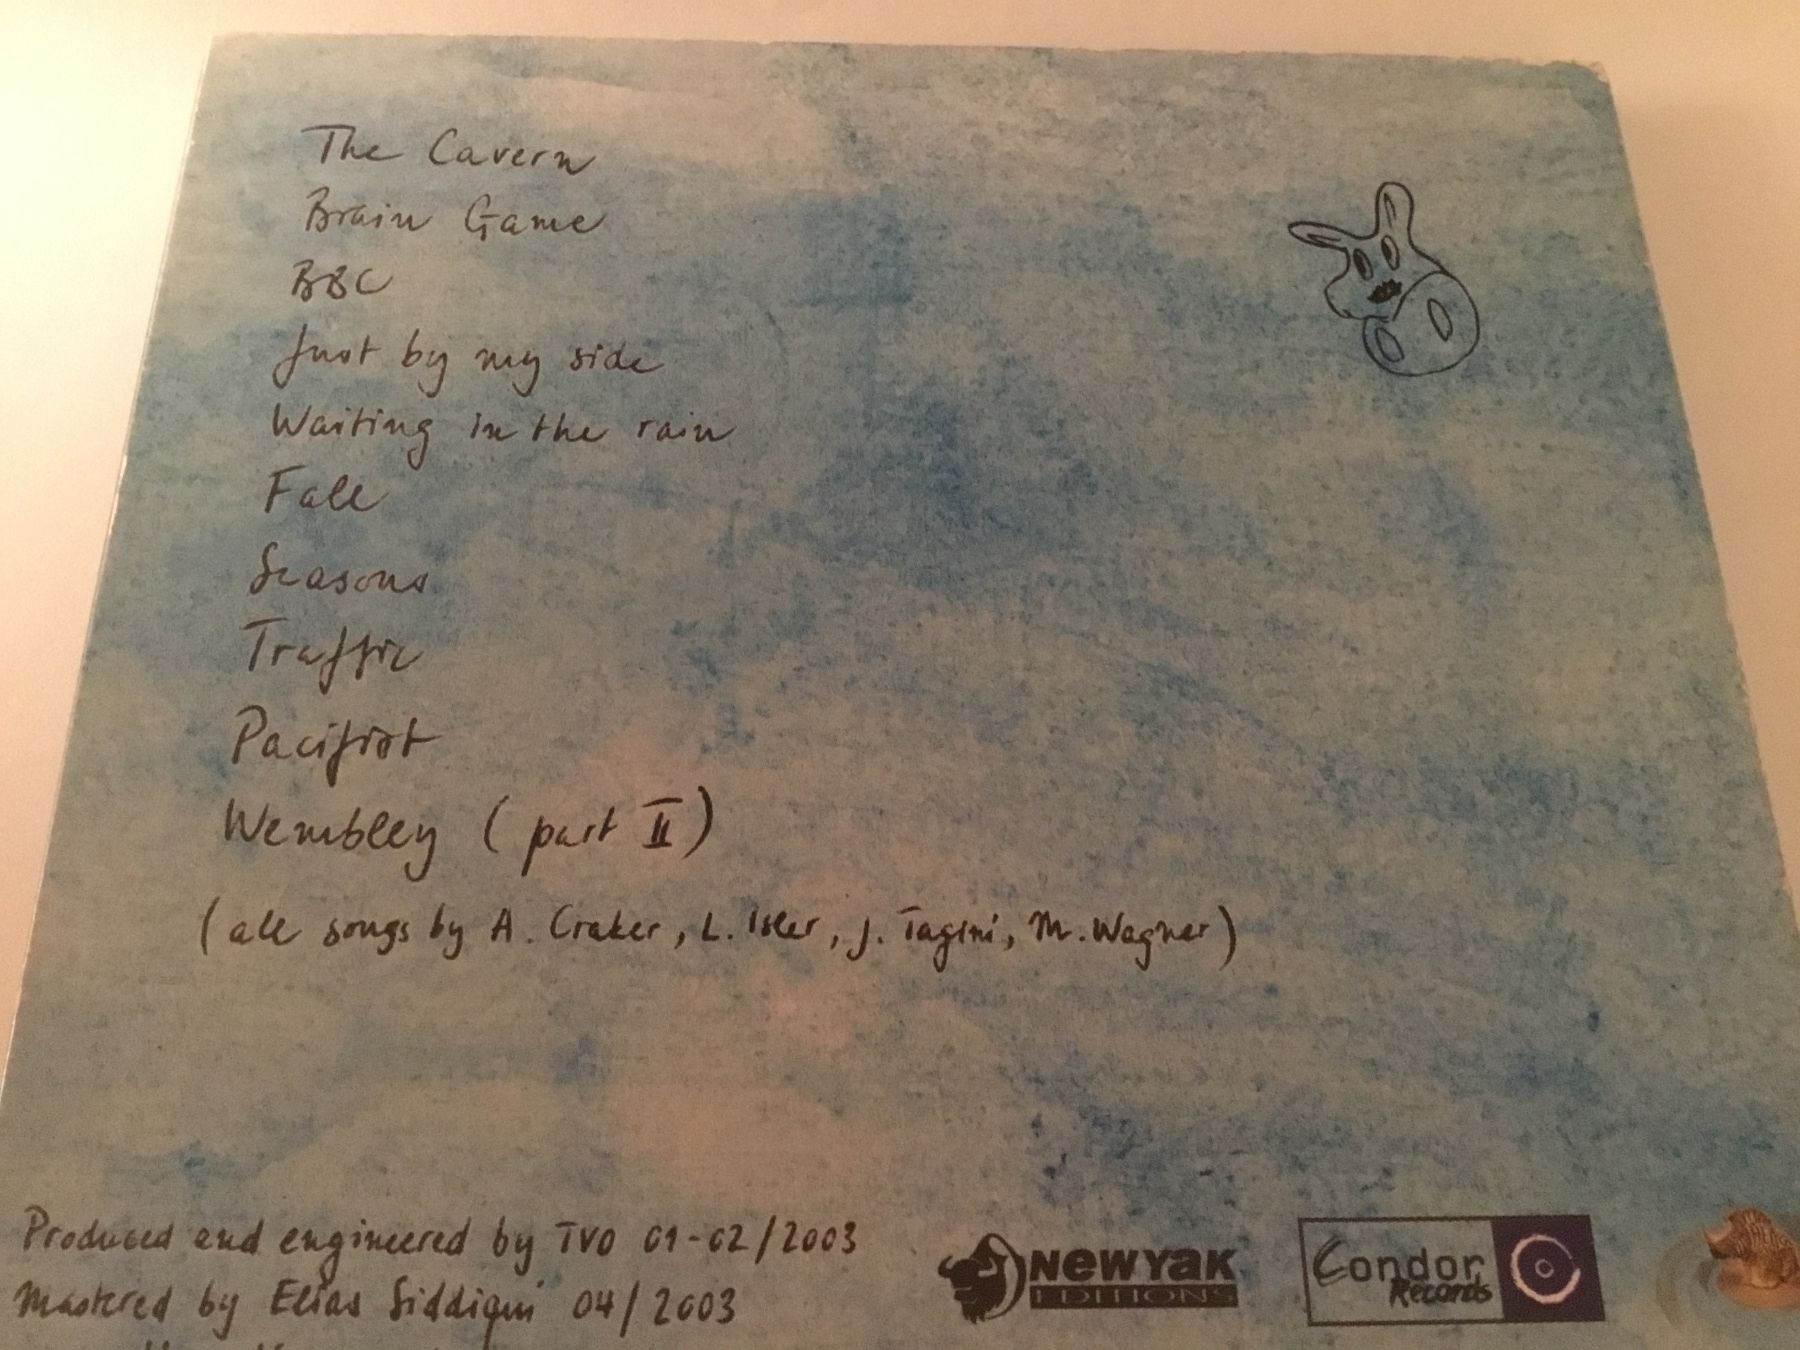 The Cavern
Brain Game
BBC
Just by my side
Waiting in the rain
Fall
Seasons
Traffic
Pacifist
Wembley (part II)
(all songs by A. Craker, L. Isler, J. Tagini, M. Wagner)
Produced and engineered by TVO 01-02/2003
Mastered by Elias Siddiqui 04/2003
NEWYAK
EDITIONS
Condor
Records